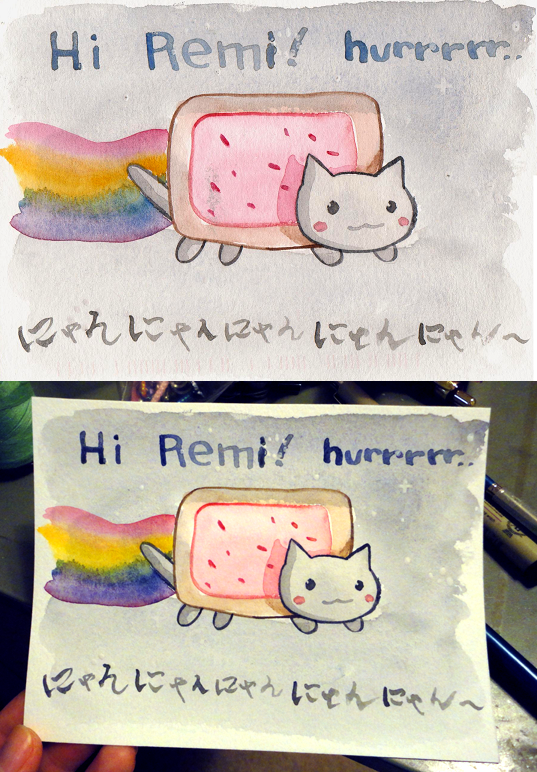 Hi Remi! hurrrrr..
にゃん にゃん にゃん にゃん にゃん～
Hi Remi! hurrrrr..
にゃん にゃん にゃん にゃん にゃん～